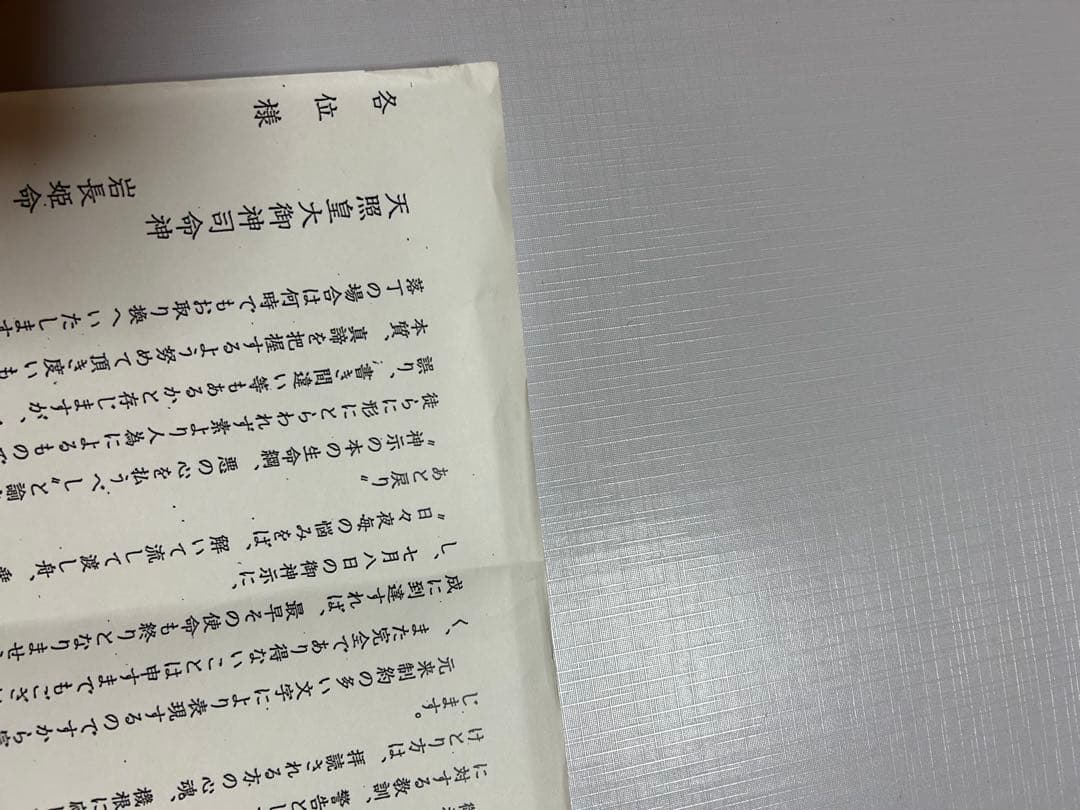 に対する教訓、警告とし
けとり方は、拝読される方の心魂 機根に
じます。
元来制約の多い文字により表現するのですから
く、また完全であり得ないことは申すまでもござ
成に到達すれば、最早その使命も終りとなりませ
し、七月八日の御神示に、
〝日々夜毎の悩みをば、解いて流して渡し舟、
あと戻り〟
〝神示の本の生命綱、悪の心を払うべし〟と諭
徒らに形にとらわれず素より人為によるもので
誤り、書き間違い等もあるかと存じますが、
本質、真諦を把握するよう努めて頂き度いも
落丁の場合は何時でもお取り換へいたします
天照皇大御神司命神
岩長姫命
各位様